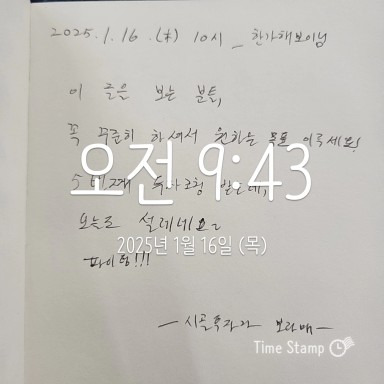 2025. 1. 16 (木) 10시 _ 한가해보이님
이 글을 보는 분들,
꼭 꾸준히 하셔서 원하는 목표 이루세요!
오전 9:43
받는데,
오늘도 설레네요~
2025년 1월 16일 (목)
파이팅!!!
- 시골투자자 보라매 -
Time Stamp